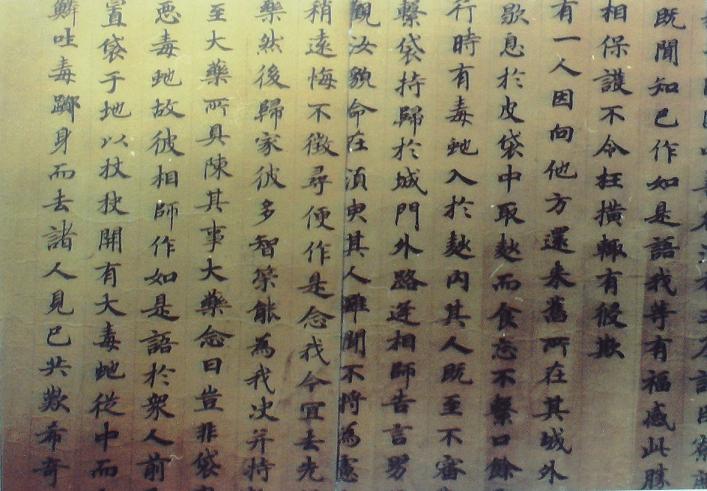 既聞知已作如是語我等有福感此勝
相保護不令枉橫輒有侵欺
有一人因向他方還來舊所在其城外
歇息於皮袋中取麨而食忘不繫口餘
行時有毒虵入於麨內其人既至不審
繫袋持歸於城門外路逢相師告言男
觀汝貌命在須臾其人雖聞不將為憲
稍遠悔不徵尋便作是念我今宜去先
藥然後歸家彼多智策能為我決并持
至大藥所具陳其事大藥念曰豈非袋
惡毒虵故彼相師作如是語於眾人前
置袋于地以杖抉開有大毒虵從中而
吐毒躑身而去諸人見已共歎希奇